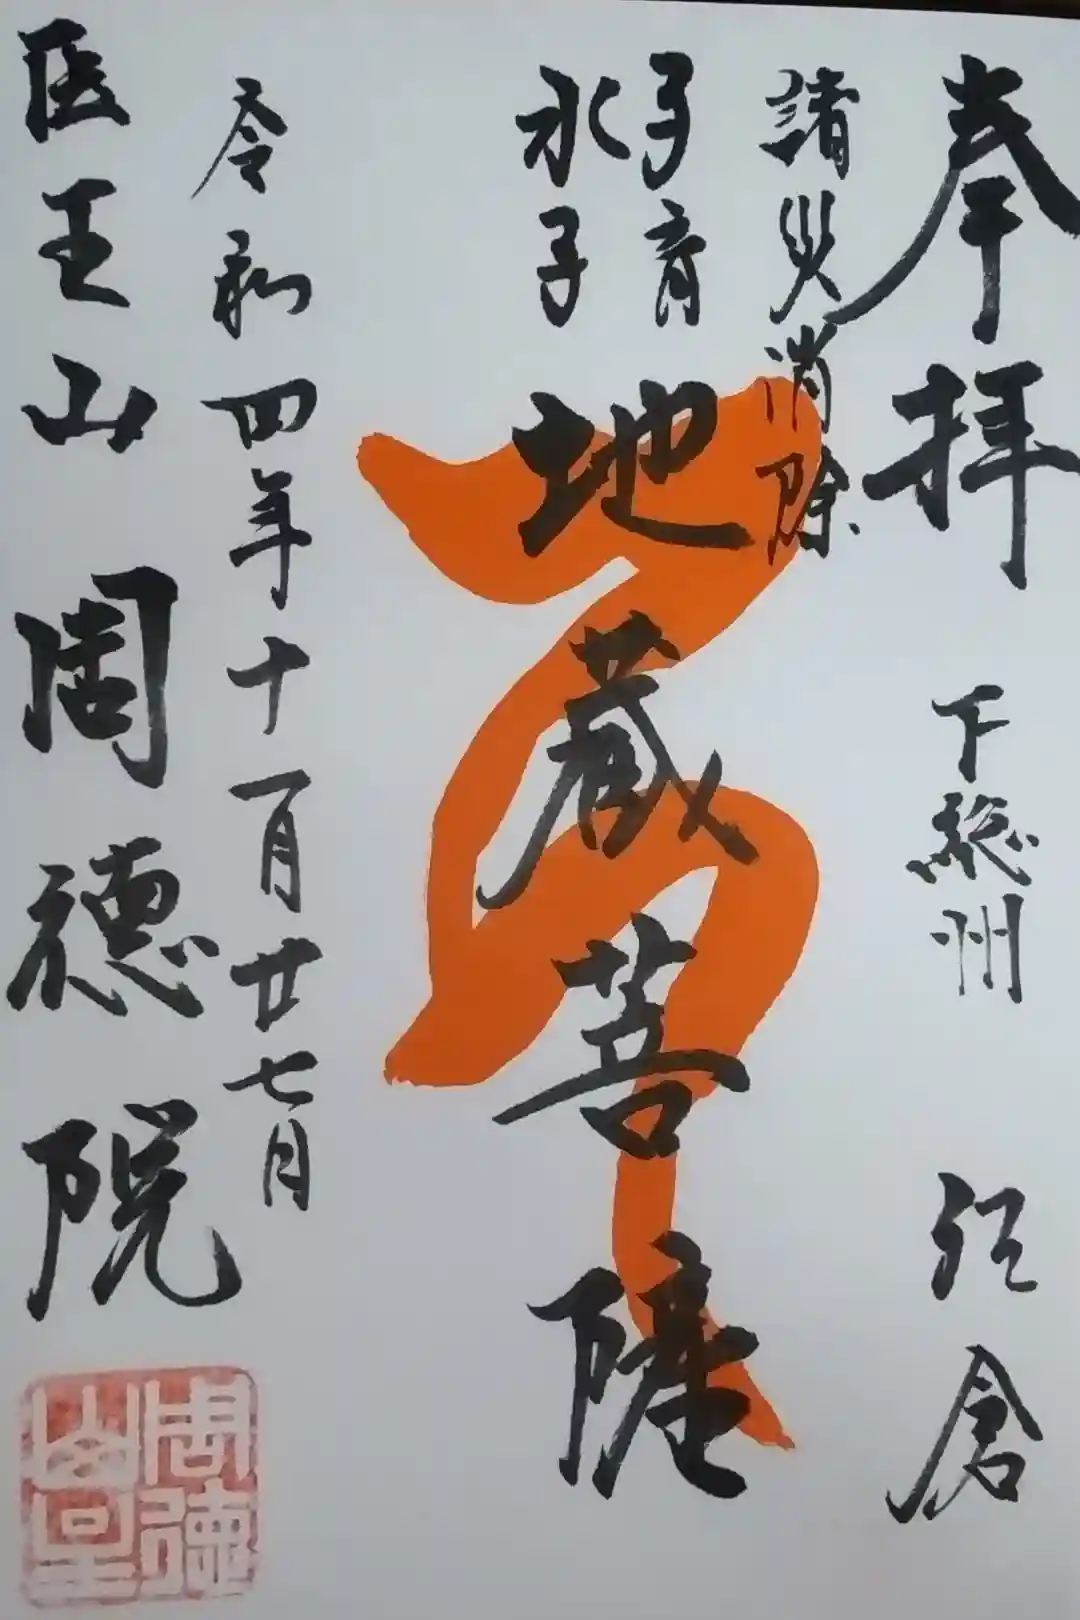 奉拝
下総州 佐倉
諸災消除
子育
水子
地蔵菩薩
令和四年十一月廿七日
医王山 周徳院
周徳